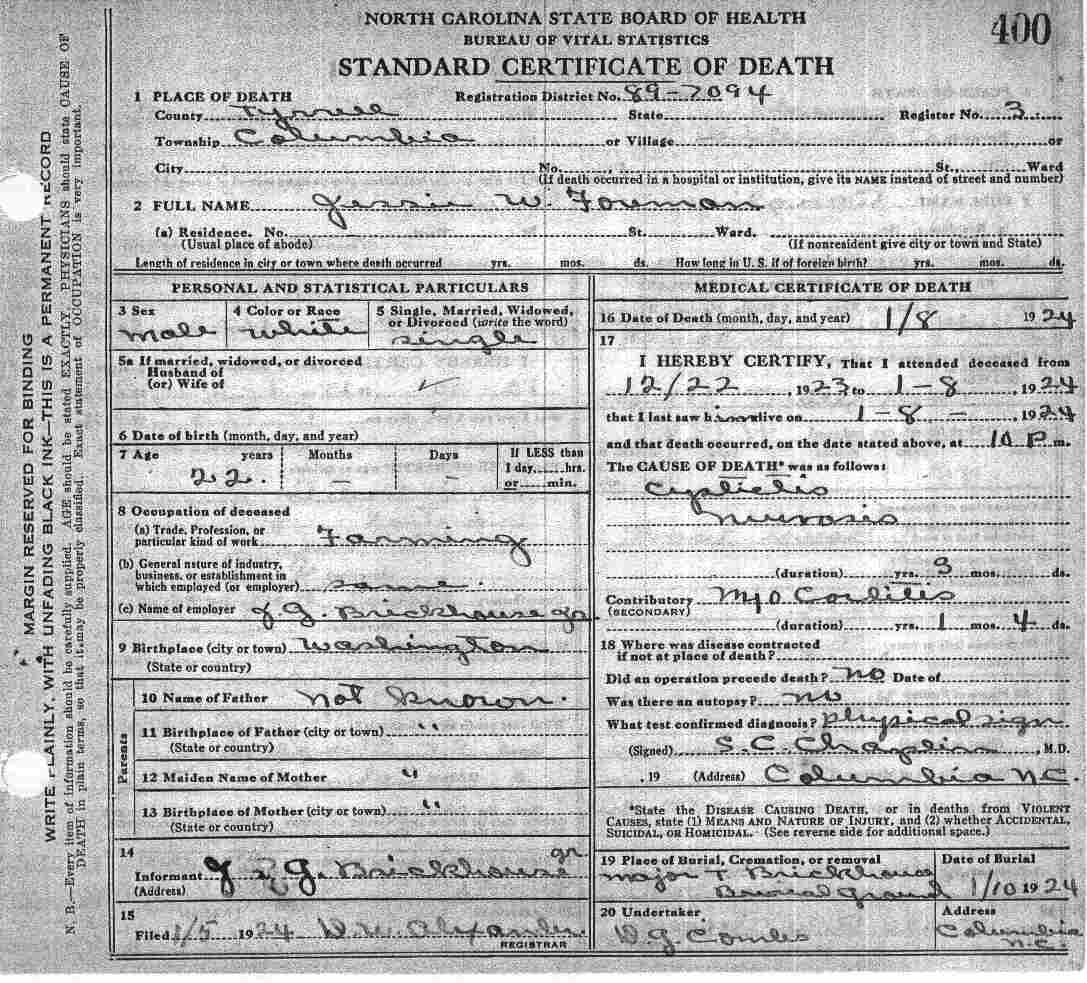 NORTH CAROLINA STATE BOARD OF HEALTH
400
BUREAU OF VITAL STATISTICS
STANDARD CERTIFICATE OF DEATH
1 PLACE OF DEATH Registration District No. 89-7094
County Tyrrell State Register No. 3
Township Columbia or Village or
City No. St., Ward
(If death occurred in a hospital or institution, give its NAME instead of street and number)
2 FULL NAME Jessie W. Foreman
(a) Residence. No. St. Ward.
(Usual place of abode) (If nonresident give city or town and State)
Length of residence in city or town where death occurred yrs. mos. ds. How long in U. S. if of foreign birth? yrs. mos. ds.
PERSONAL AND STATISTICAL PARTICULARS
3 Sex 4 Color or Race 5 Single, Married, Widowed,
or Divorced (write the word)
male white single
5a If married, widowed, or divorced
Husband of
(or) Wife of
6 Date of birth (month, day, and year)
7 Age years Months Days If LESS than
1 day, hrs.
or min.
22. — -
8 Occupation of deceased
(a) Trade, Profession, or
particular kind of work Farming
(b) General nature of industry,
business, or establishment in
which employed (or employer) same.
(c) Name of employer J G. Brickhouse Jr.
9 Birthplace (city or town) Washington
(State or country)
Parents
10 Name of Father not known.
11 Birthplace of Father (city or town) "
(State or country)
12 Maiden Name of Mother "
13 Birthplace of Mother (city or town) "
(State or country)
14
Informant J. G. Brickhouse Jr
(Address)
15
Filed 1/5 1924 D. W. Alexander
REGISTRAR
MEDICAL CERTIFICATE OF DEATH
16 Date of Death (month, day, and year) 1/8 1924
17
I HEREBY CERTIFY, That I attended deceased from
12/22, 1923, to 1-8, 1924
that I last saw him alive on 1-8-, 1924
and that death occurred, on the date stated above, at 10 P m.
The CAUSE OF DEATH* was as follows:
(duration) yrs. 3 mos. ds.
Contributory Myo Carditis
(SECONDARY)
(duration) yrs. 1 mos. 4 ds.
18 Where was disease contracted
if not at place of death?
Did an operation precede death? no Date of
Was there an autopsy? no
What test confirmed diagnosis? Physical sign
(Signed) S. C. Chaplin, M.D.
, 19 (Address) Columbia N.C.
*State the DISEASE CAUSING DEATH, or in deaths from VIOLENT
CAUSES, state (1) MEANS AND NATURE OF INJURY, and (2) whether ACCIDENTAL,
SUICIDAL, OR HOMICIDAL. (See reverse side for additional space.)
19 Place of Burial, Cremation, or removal Date of Burial
Major T Brickhouse
Burial Ground 1/10 1924
20 Undertaker Address
D. G. Combs Columbia
N.C.
MARGIN RESERVED FOR BINDING
WRITE PLAINLY, WITH UNFADING BLACK INK—THIS IS A PERMANENT RECORD
N. B.—Every item of information should be carefully supplied. AGE should be stated EXACTLY. PHYSICIANS should state CAUSE OF
DEATH in plain terms, so that it may be properly classified. Exact statement of OCCUPATION is very important.